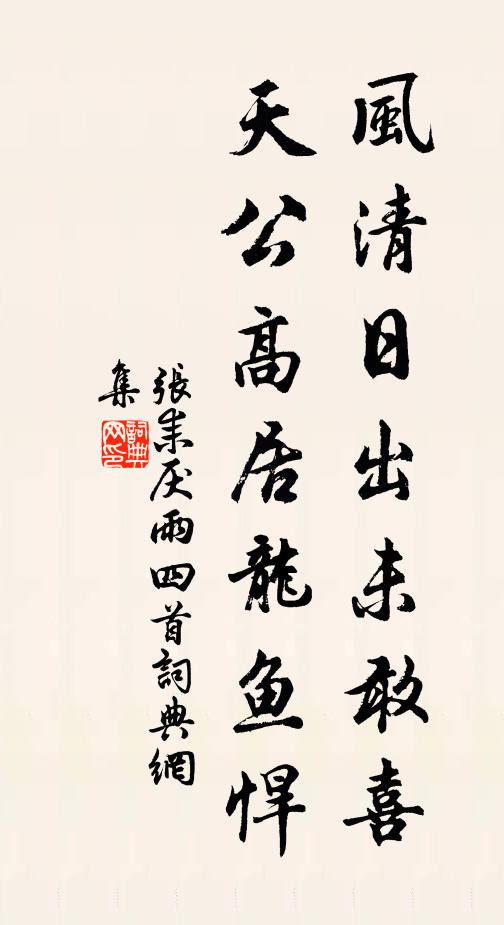 風清日出未敢喜
天公高居龍鱼悍
張耒厌雨四首詞典網
集
詞典
网印